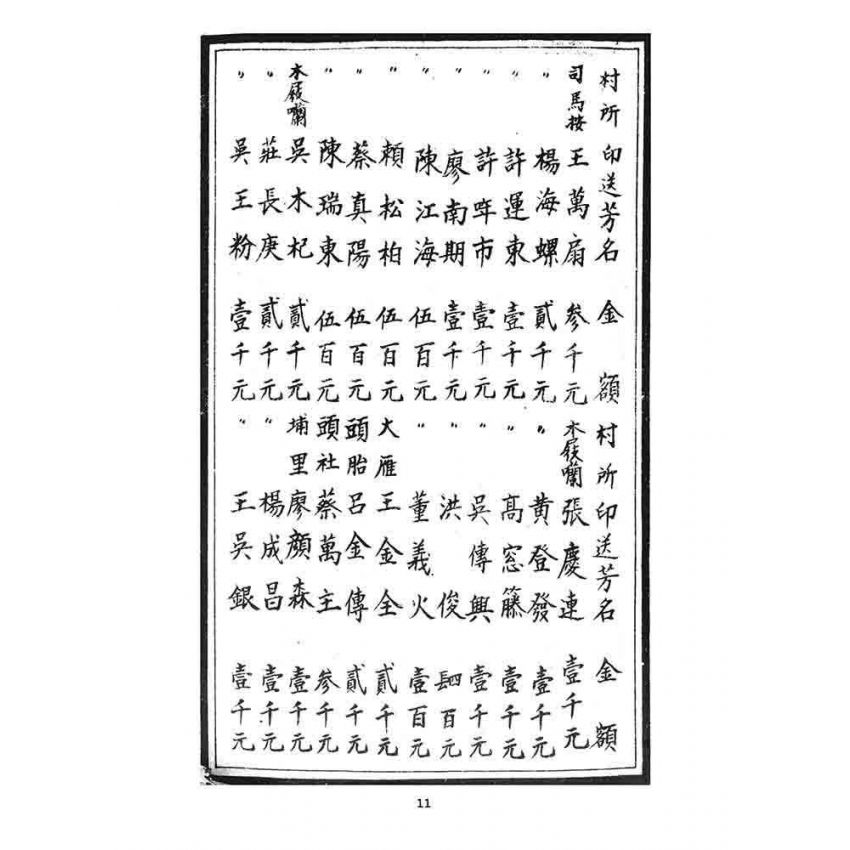 村所 印送芳名 金額
司馬按 王萬扇 參千元
〃 楊海螺 貳千元
〃 許運東 壹千元
〃 許年市 壹千元
〃 廖南期 壹千元
〃 陳江海 伍百元
〃 賴松柏 伍百元
〃 蔡真陽 伍百元
〃 陳瑞東 伍百元
木屐囒 吳木杞 貳千元
〃 莊長庚 貳千元
〃 吳王粉 壹千元
村所 印送芳名 金額
木屐囒 張慶連 壹千元
〃 黄登發 壹千元
〃 高窓籐 壹千元
〃 吳傳興 壹千元
〃 洪俊 肆百元
〃 董義火 壹百元
大雁 王金全 貳千元
頭胎 呂金傳 貳千元
頭社 蔡萬主 參千元
埔里 廖顏森 壹千元
〃 楊成昌 壹千元
〃 王吳銀 壹千元
11